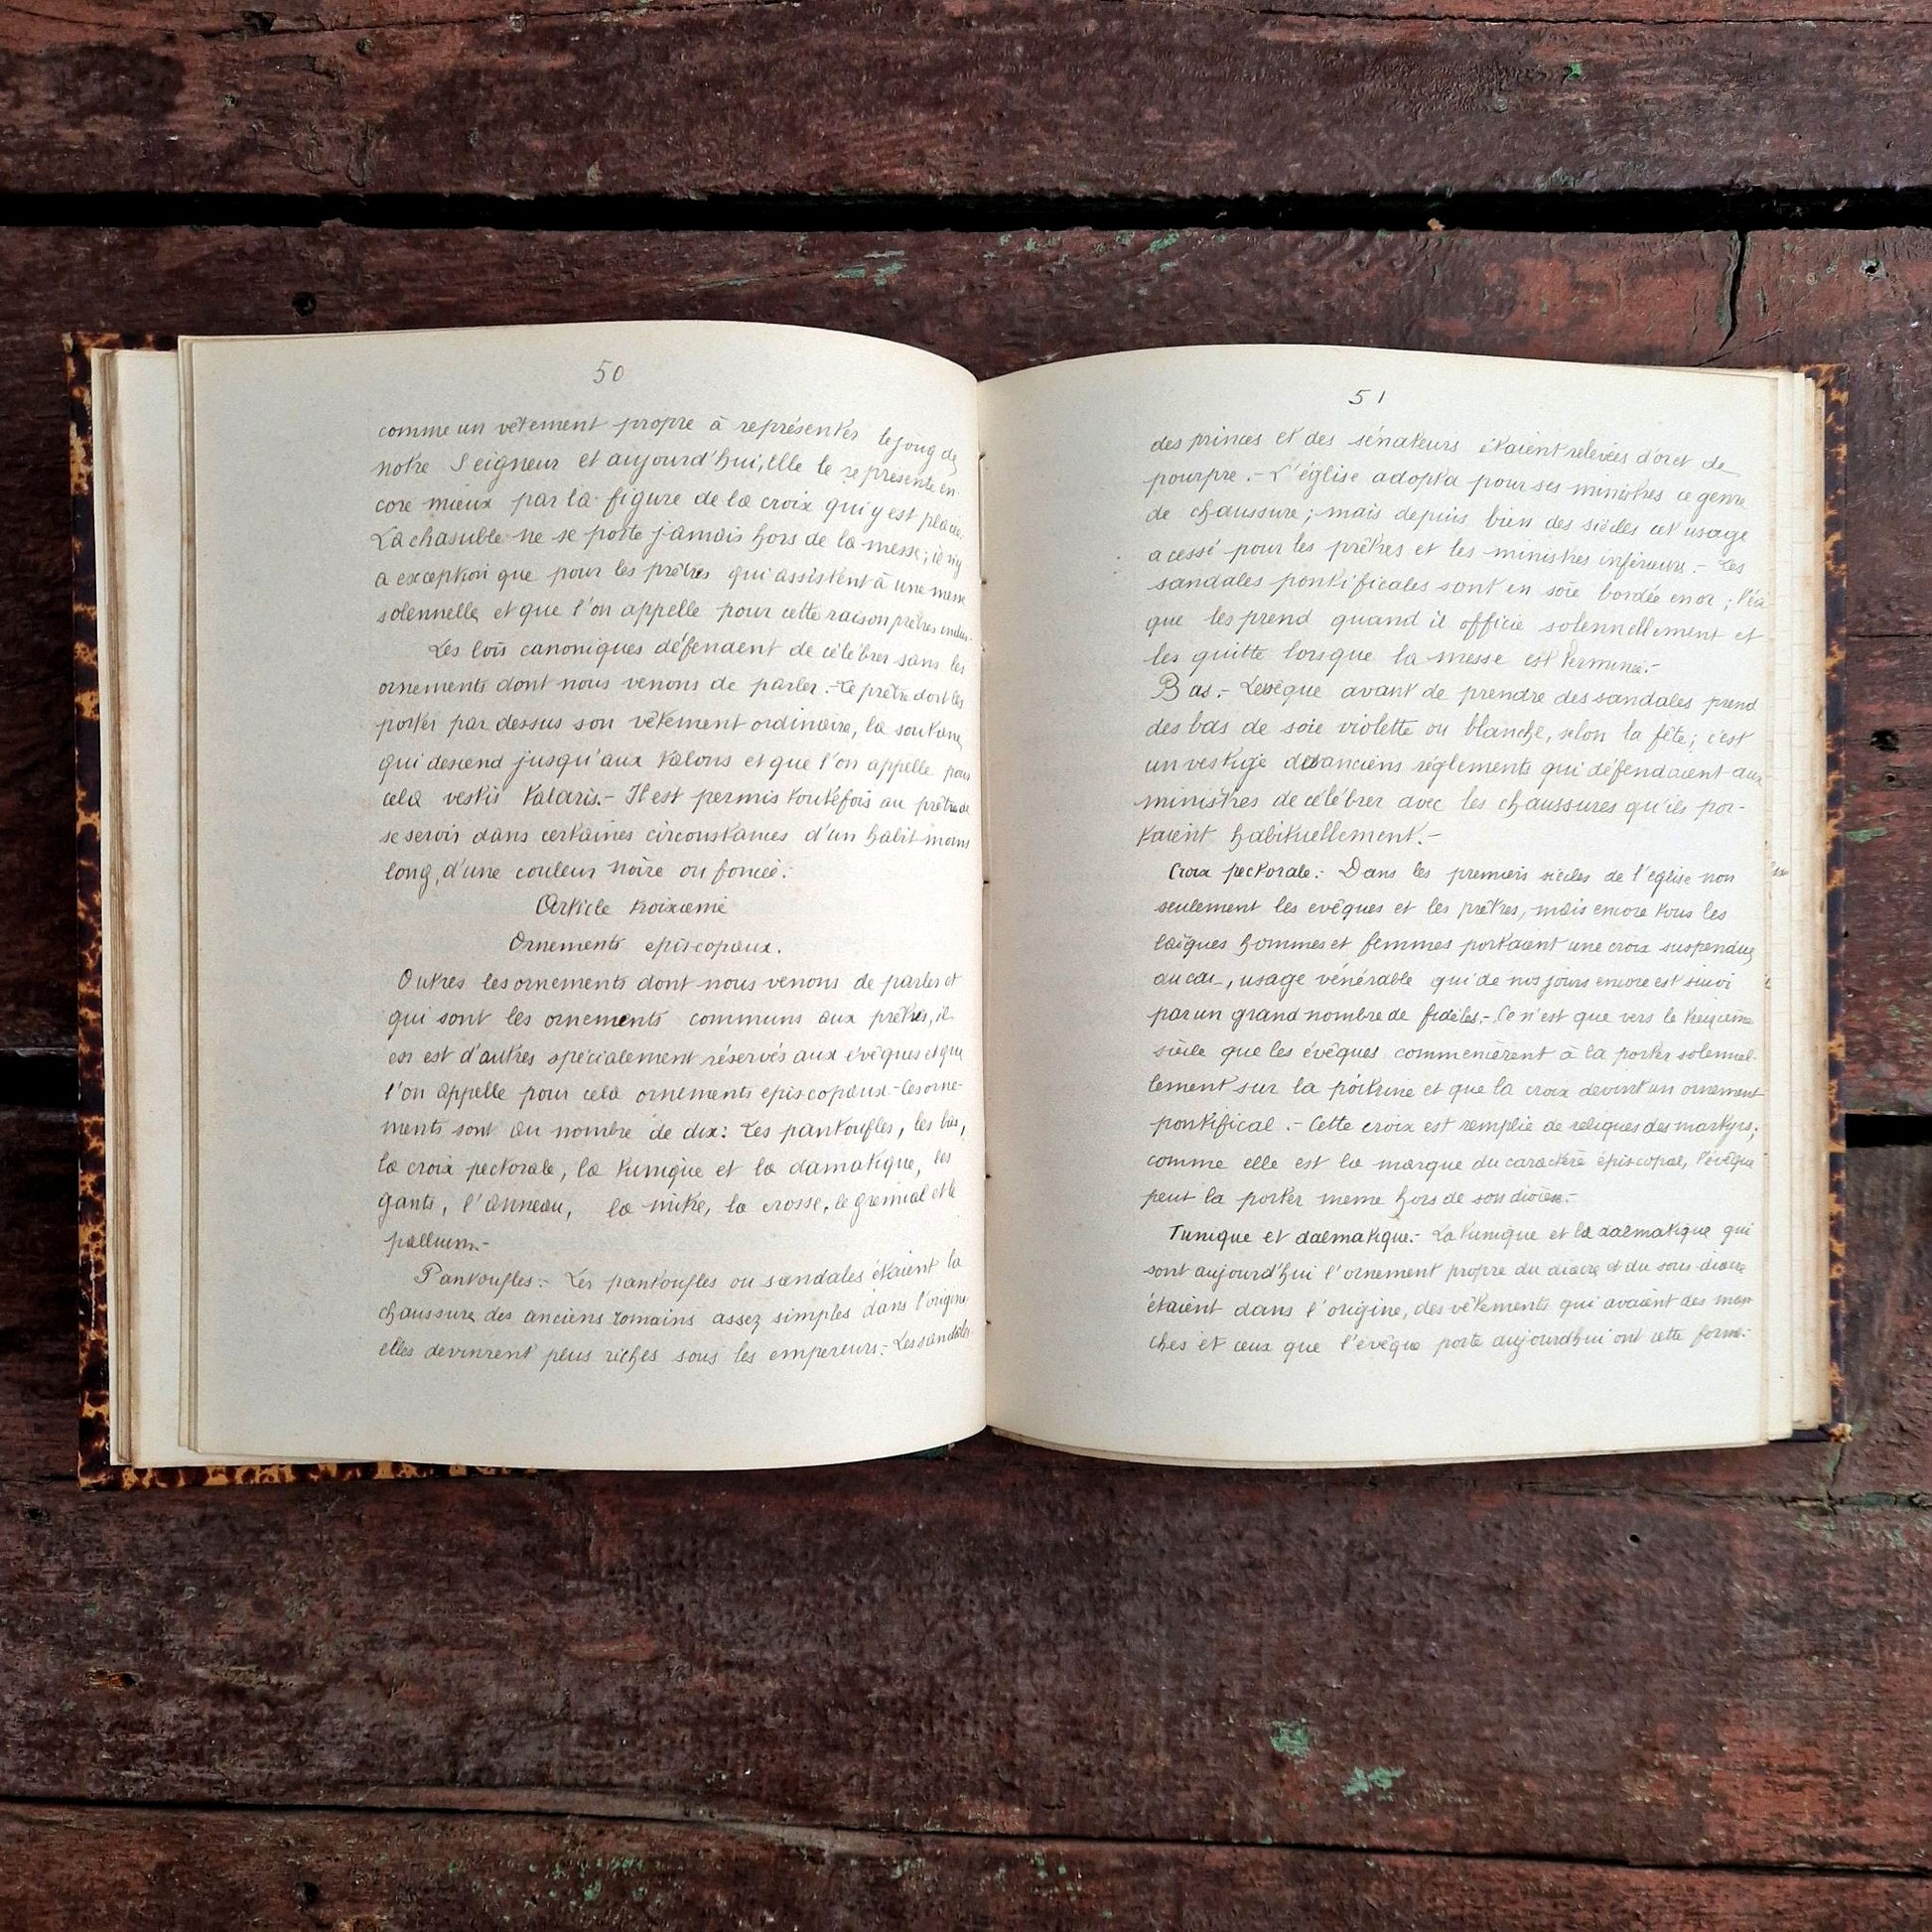 50
comme un vêtement propre à représenter le joug de
notre Seigneur et aujourd'hui, elle le représente en
core mieux par la figure de la croix qui y est placée.
La chasuble ne se porte jamais hors de la messe; il n'y
a exception que pour les prêtres qui assistent à une messe
solennelle et que l'on appelle pour cette raison prêtres indus.
Les lois canoniques défendent de célébrer sans les
ornements dont nous venons de parler.- Le prêtre doit les
porter par dessus son vêtement ordinaire, la soutane
qui descend jusqu'aux talons et que l'on appelle pour
cela vestis talaris.- Il est permis toutefois au prêtre de
se servir dans certaines circonstances d'un habit moins
long, d'une couleur noire ou foncée.-
Article troixième
Ornements episcopaux.
Outres les ornements dont nous venons de parler et
qui sont les ornements communs aux prêtres, il
en est d'autres spécialement réservés aux évêques et que
l'on appelle pour cela ornements episcopaux.- Ces orne-
ments sont au nombre de dix: Les pantoufles, les bas,
la croix pectorale, la tunique et la damatique, les
gants, l'anneau, la mitre, la crosse, le gremial et le
pallium.-
Pantoufles.- Les pantoufles ou sandales étaient la
chaussure des anciens romains assez simples dans l'origine
elles devinrent plus riches sous les empereurs.- Les sandales
51
des princes et des sénateurs étaient relevées d'or et de
pourpre.- L'église adopta pour ses ministres ce genre
de chaussure; mais depuis bien des siècles cet usage
a cessé pour les prêtres et les ministres inférieurs.- Les
sandales pontificales sont en soie bordée en or; l'évê
que les prend quand il officie solennellement et
les quitte lorsque la messe est terminée.-
Bas.- L'evêque avant de prendre des sandales prend
des bas de soie violette ou blanche, selon la fête; c'est
un vestige des anciens réglements qui défendaient aux
ministres de célébrer avec les chaussures qu'ils por-
taient habituellement.-
Croix pectorale.- Dans les premiers siècles de l'église non
seulement les evêques et les prêtres, mais encore tous les
laïques hommes et femmes portaient une croix suspendue
au cou, usage vénérable qui de nos jours encore est suivi
par un grand nombre de fidèles.- Ce n'est que vers le treizième
siècle que les évêques commencèrent à la porter solennel-
lement sur la poitrine et que la croix devint un ornement
pontifical.- Cette croix est remplie de reliques des martyrs;
comme elle est la marque du caractère épiscopal, l'évêque
peut la porter meme hors de son diocèse.-
Tunique et dalmatique.- La tunique et la dalmatique qui
sont aujourd'hui l'ornement propre du diacre et du sous-diacre
étaient dans l'origine, des vêtements qui avaient des man
ches et ceux que l'évêque porte aujourd'hui ont cette forme.-